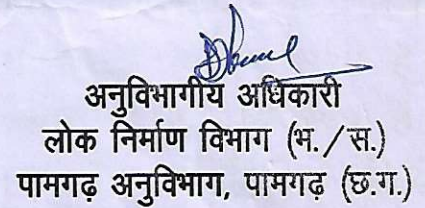 अनुविभागीय अधिकारी
लोक निर्माण विभाग (भ./स.)
पामगढ़ अनुविभाग, पामगढ़ (छ.ग.)